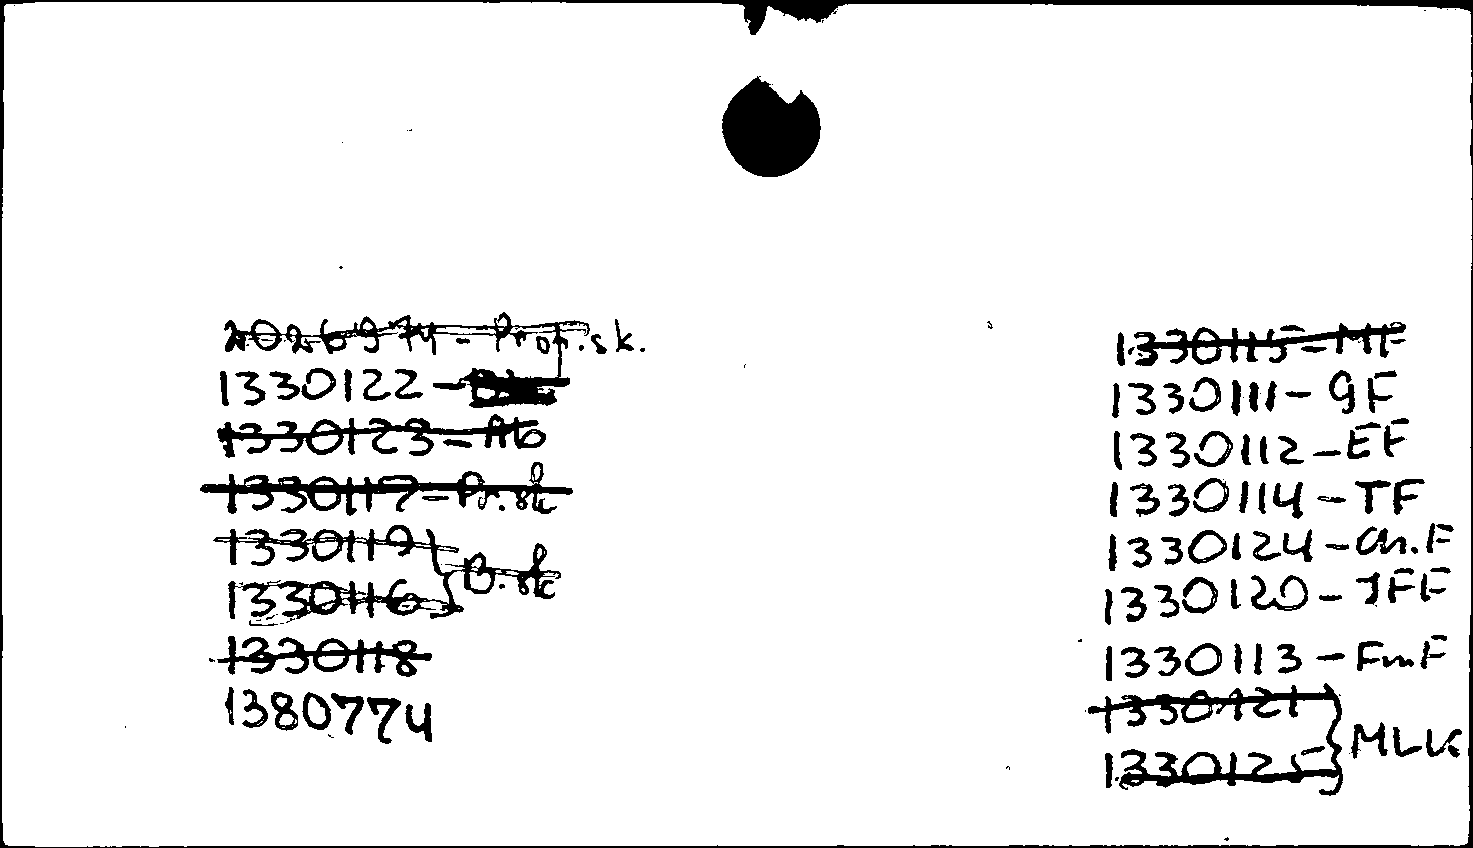 2026974 - Prop.sk.
1330122 -
1330123 - Ab
1330117 - Pr.sk
1330119
1330116 } B.sk
1330118
1380774
1330115 - MF
1330111 - GF
1330112 - EF
1330114 - TF
1330124 - Ch.F
1330120 - JFF
1330113 - FmF
1330121
1330125 } MLK